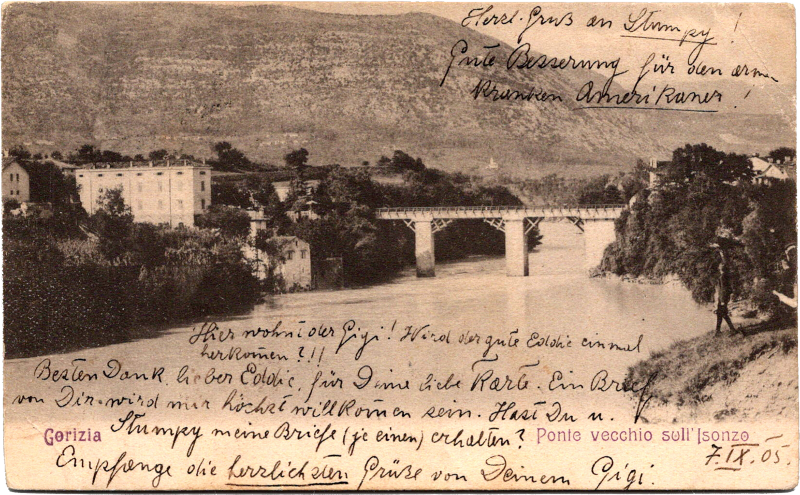 Herzl. Gruß an Stumpy!
Gute Besserung für den armen
kranken Amerikaner!
Hier wohnt der Gigi! Wird der gute Eddie einmal
herkom̄en?!!
Besten Dank, lieber Eddie, für Deine liebe Karte. Ein Brief
von Dir wird mir höchst willkom̄en sein. Hast Du u.
Stumpy meine Briefe (je einen) erhalten?
Gorizia
Ponte vecchio sull'Isonzo
Empfange die herzlichsten Grüße von Deinem Gigi.
7.IX.05.